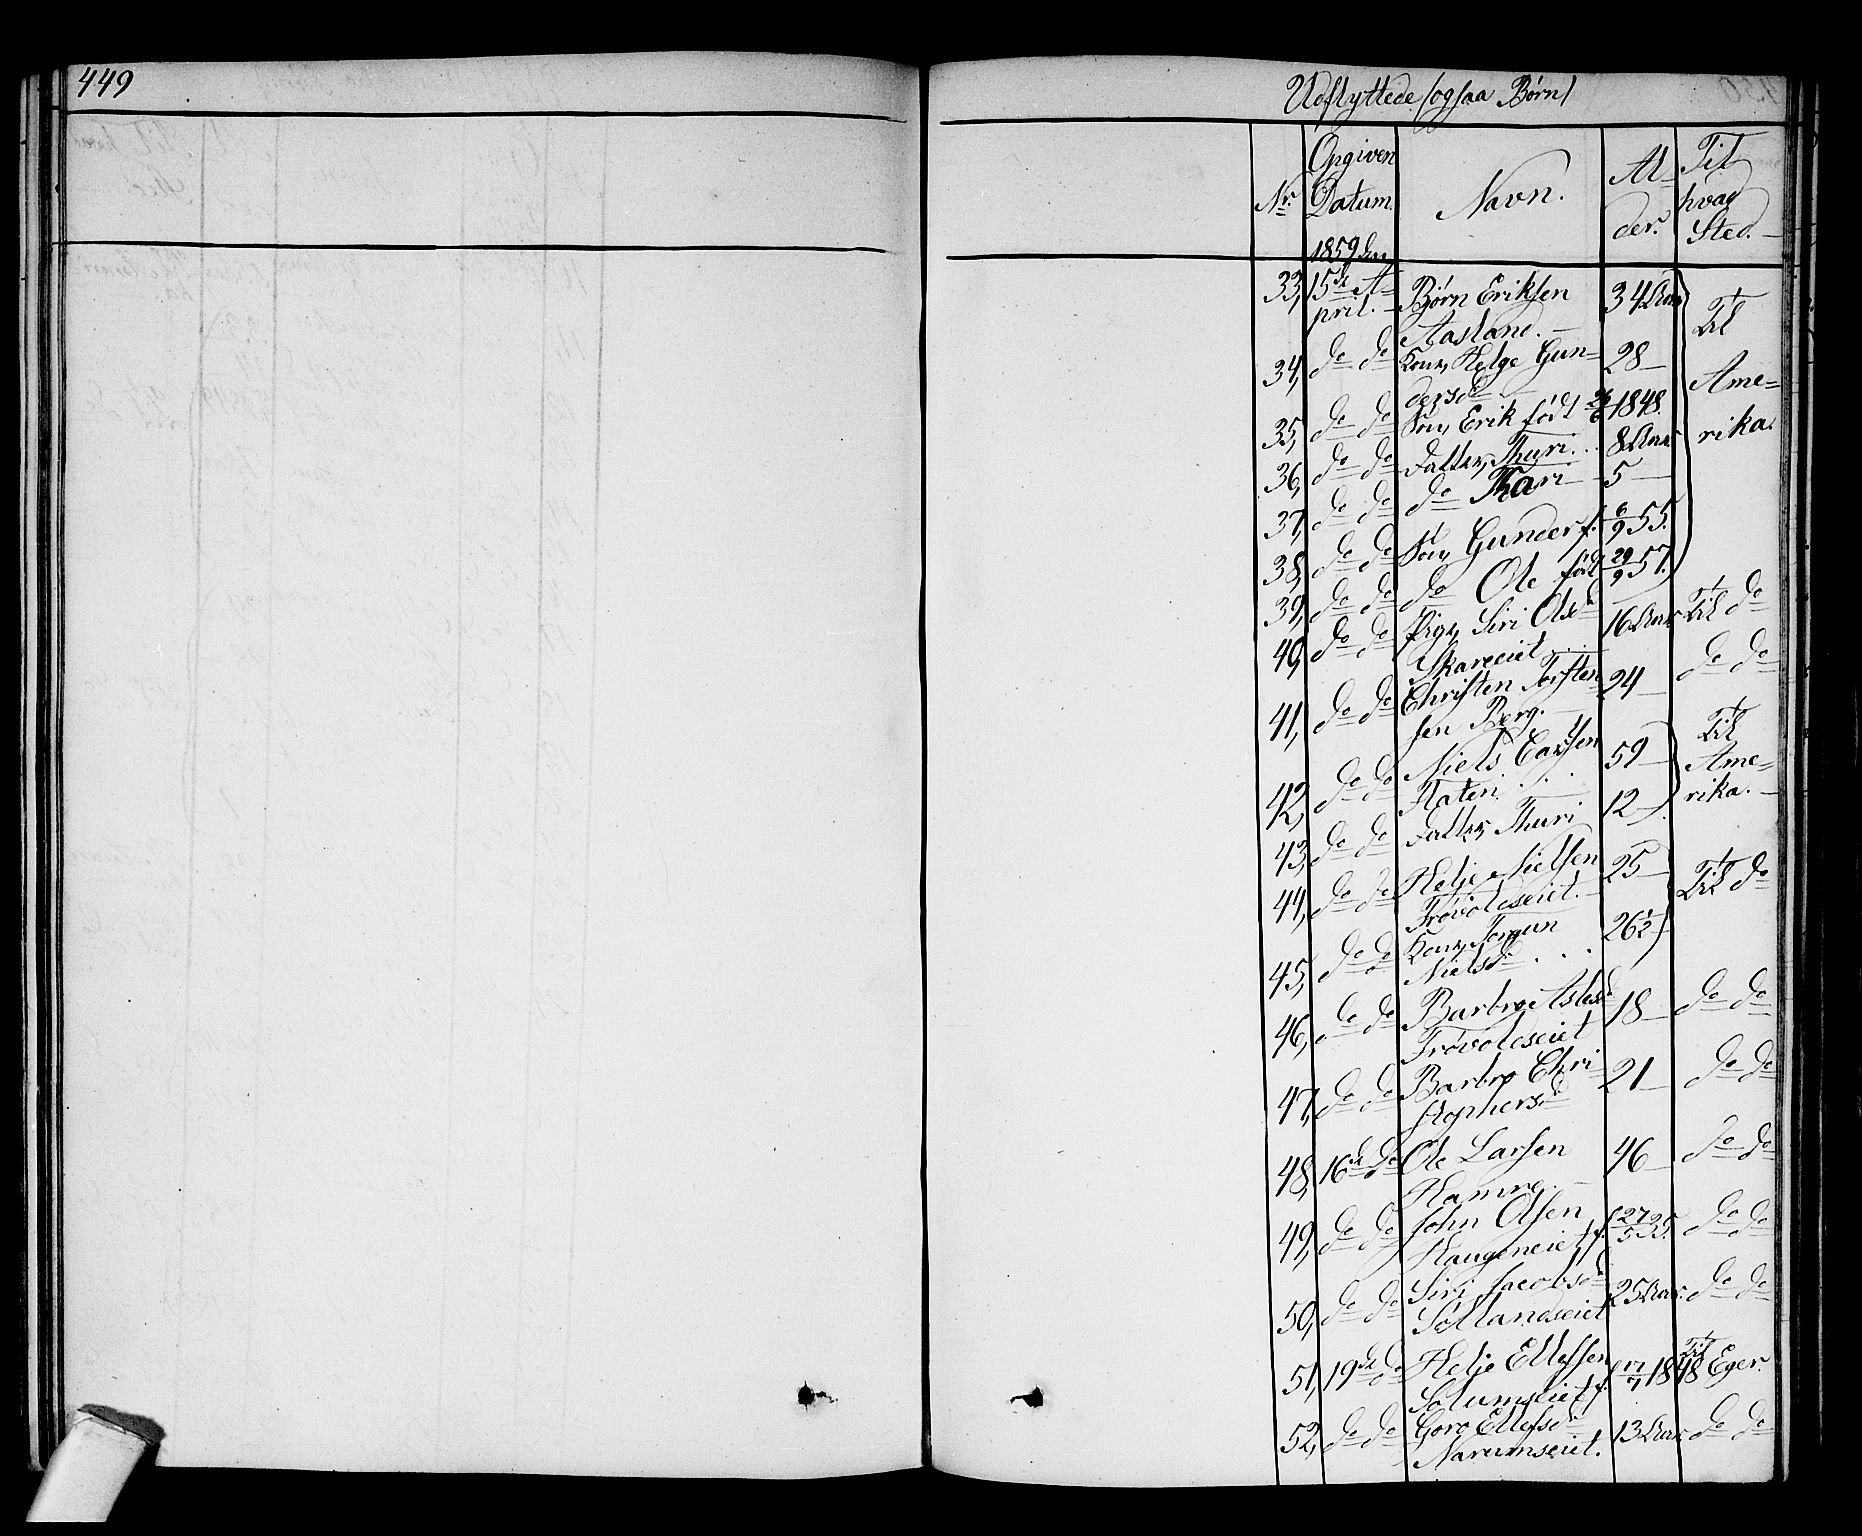 449
Udflyttede (ogsaa Børn)
450
Nr. Opgiven Datum. Navn. Alder. Til hvad Sted.
1859 den
33, 15de April. Bjørn Eriksen Aasland. 34 Aar Til Amerika.
34, do do Kone, Helge Gundersd 28
35, do do Søn, Erik født 26/6 1848.
36, do do Datter, Thuri 8 Aar
37, do do do Kari 5
38, do do Søn, Gunder f. 6/9 55.
39, do do do Ole født 29/9 57.
40, do do Pige, Siri Olsd Skareeiet 16 Aar Til do
41, do do Christen Torstensen Berg. 24 do do
42, do do Niels Flaten 59 Til Amerika.
43, do do Datter, Thuri 12
44, do do Helje Nielsen Trøvoldseiet. 25 Til do
45, do do Kone, Jorgun Nielsd 26 1/2
46, do do Barbro Aslesd Trøvoldseiet 18 do do
47, do do Barbro Christophersd 21 do do
48, 16de do Ole Larsen Hamre. 46 do do
49, do do John Olsen Haugeneiet f. 27/5 35. do do
50, do do Siri Jacobsd Sollandseiet 25 Aar. do do
51, 19de do Helje Ellefsen Solumseiet f. 17/7 1848 Til Eger.
52, do do Goro Ellefsd Narumseiet. 13 Aar do do